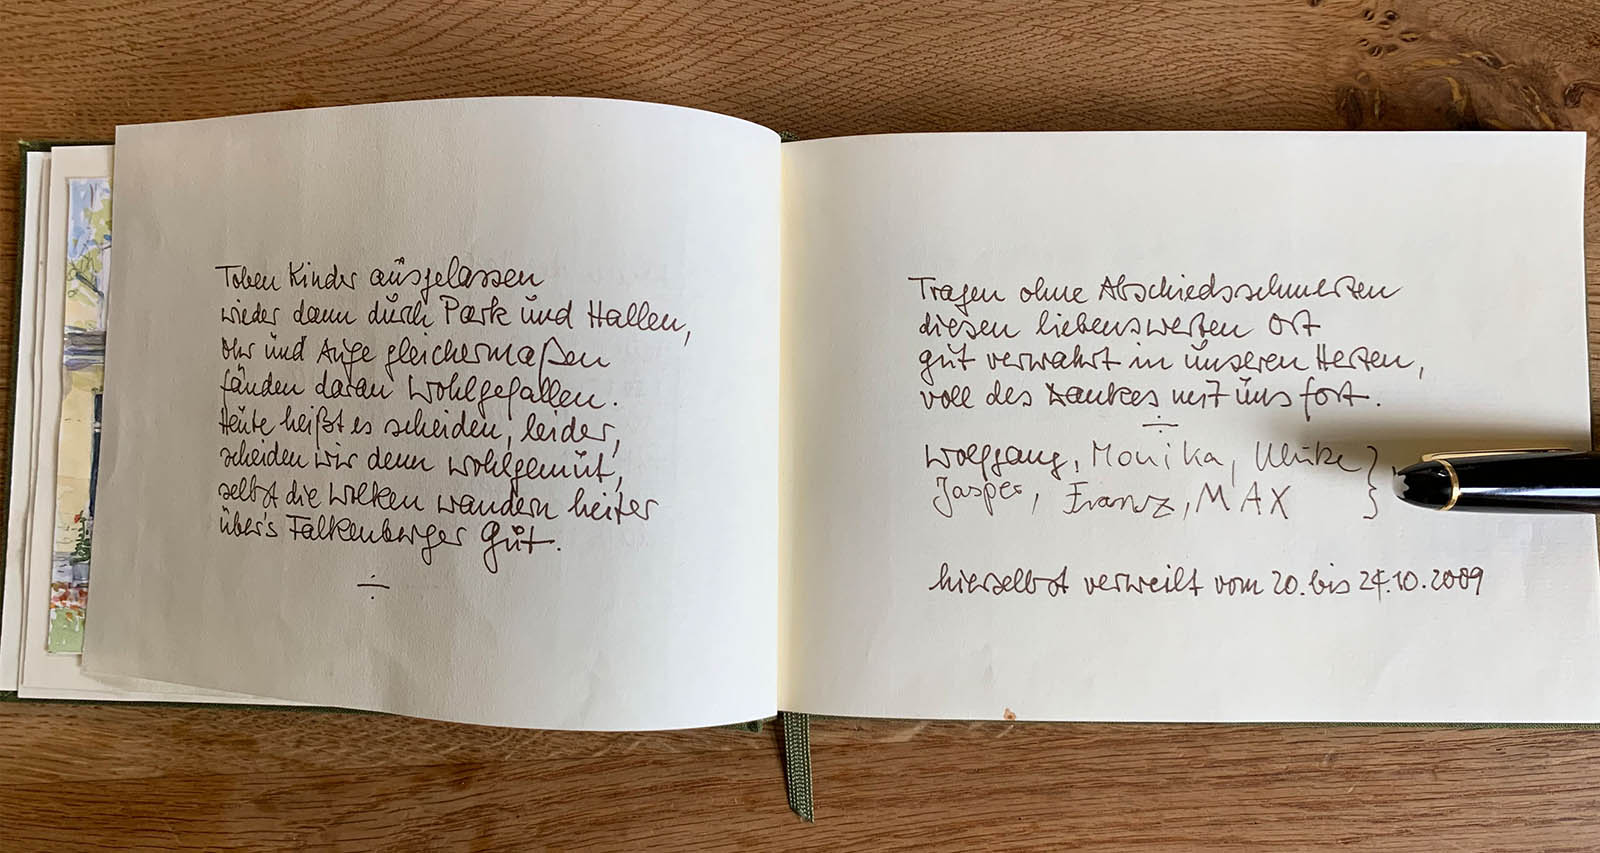 Toben Kinder ausgelassen
wieder dann durch Park und Hallen,
Ohr und Auge gleichermaßen
fänden daran Wohlgefallen.
Heute heißt es scheiden, leider,
scheiden wir denn wohlgemut,
selbst die Wolken wandern heiter
über's Falkenberger Gut.
Tragen ohne Abschiedsschmerzen
diesen liebenswerten Ort
gut verwahrt in unseren Herzen,
voll des Dankes mit uns fort.
Wolfgang, Monika, Ulrike
Jasper, Franz, MAX
hierselbst verweilt vom 20. bis 24.10.2009